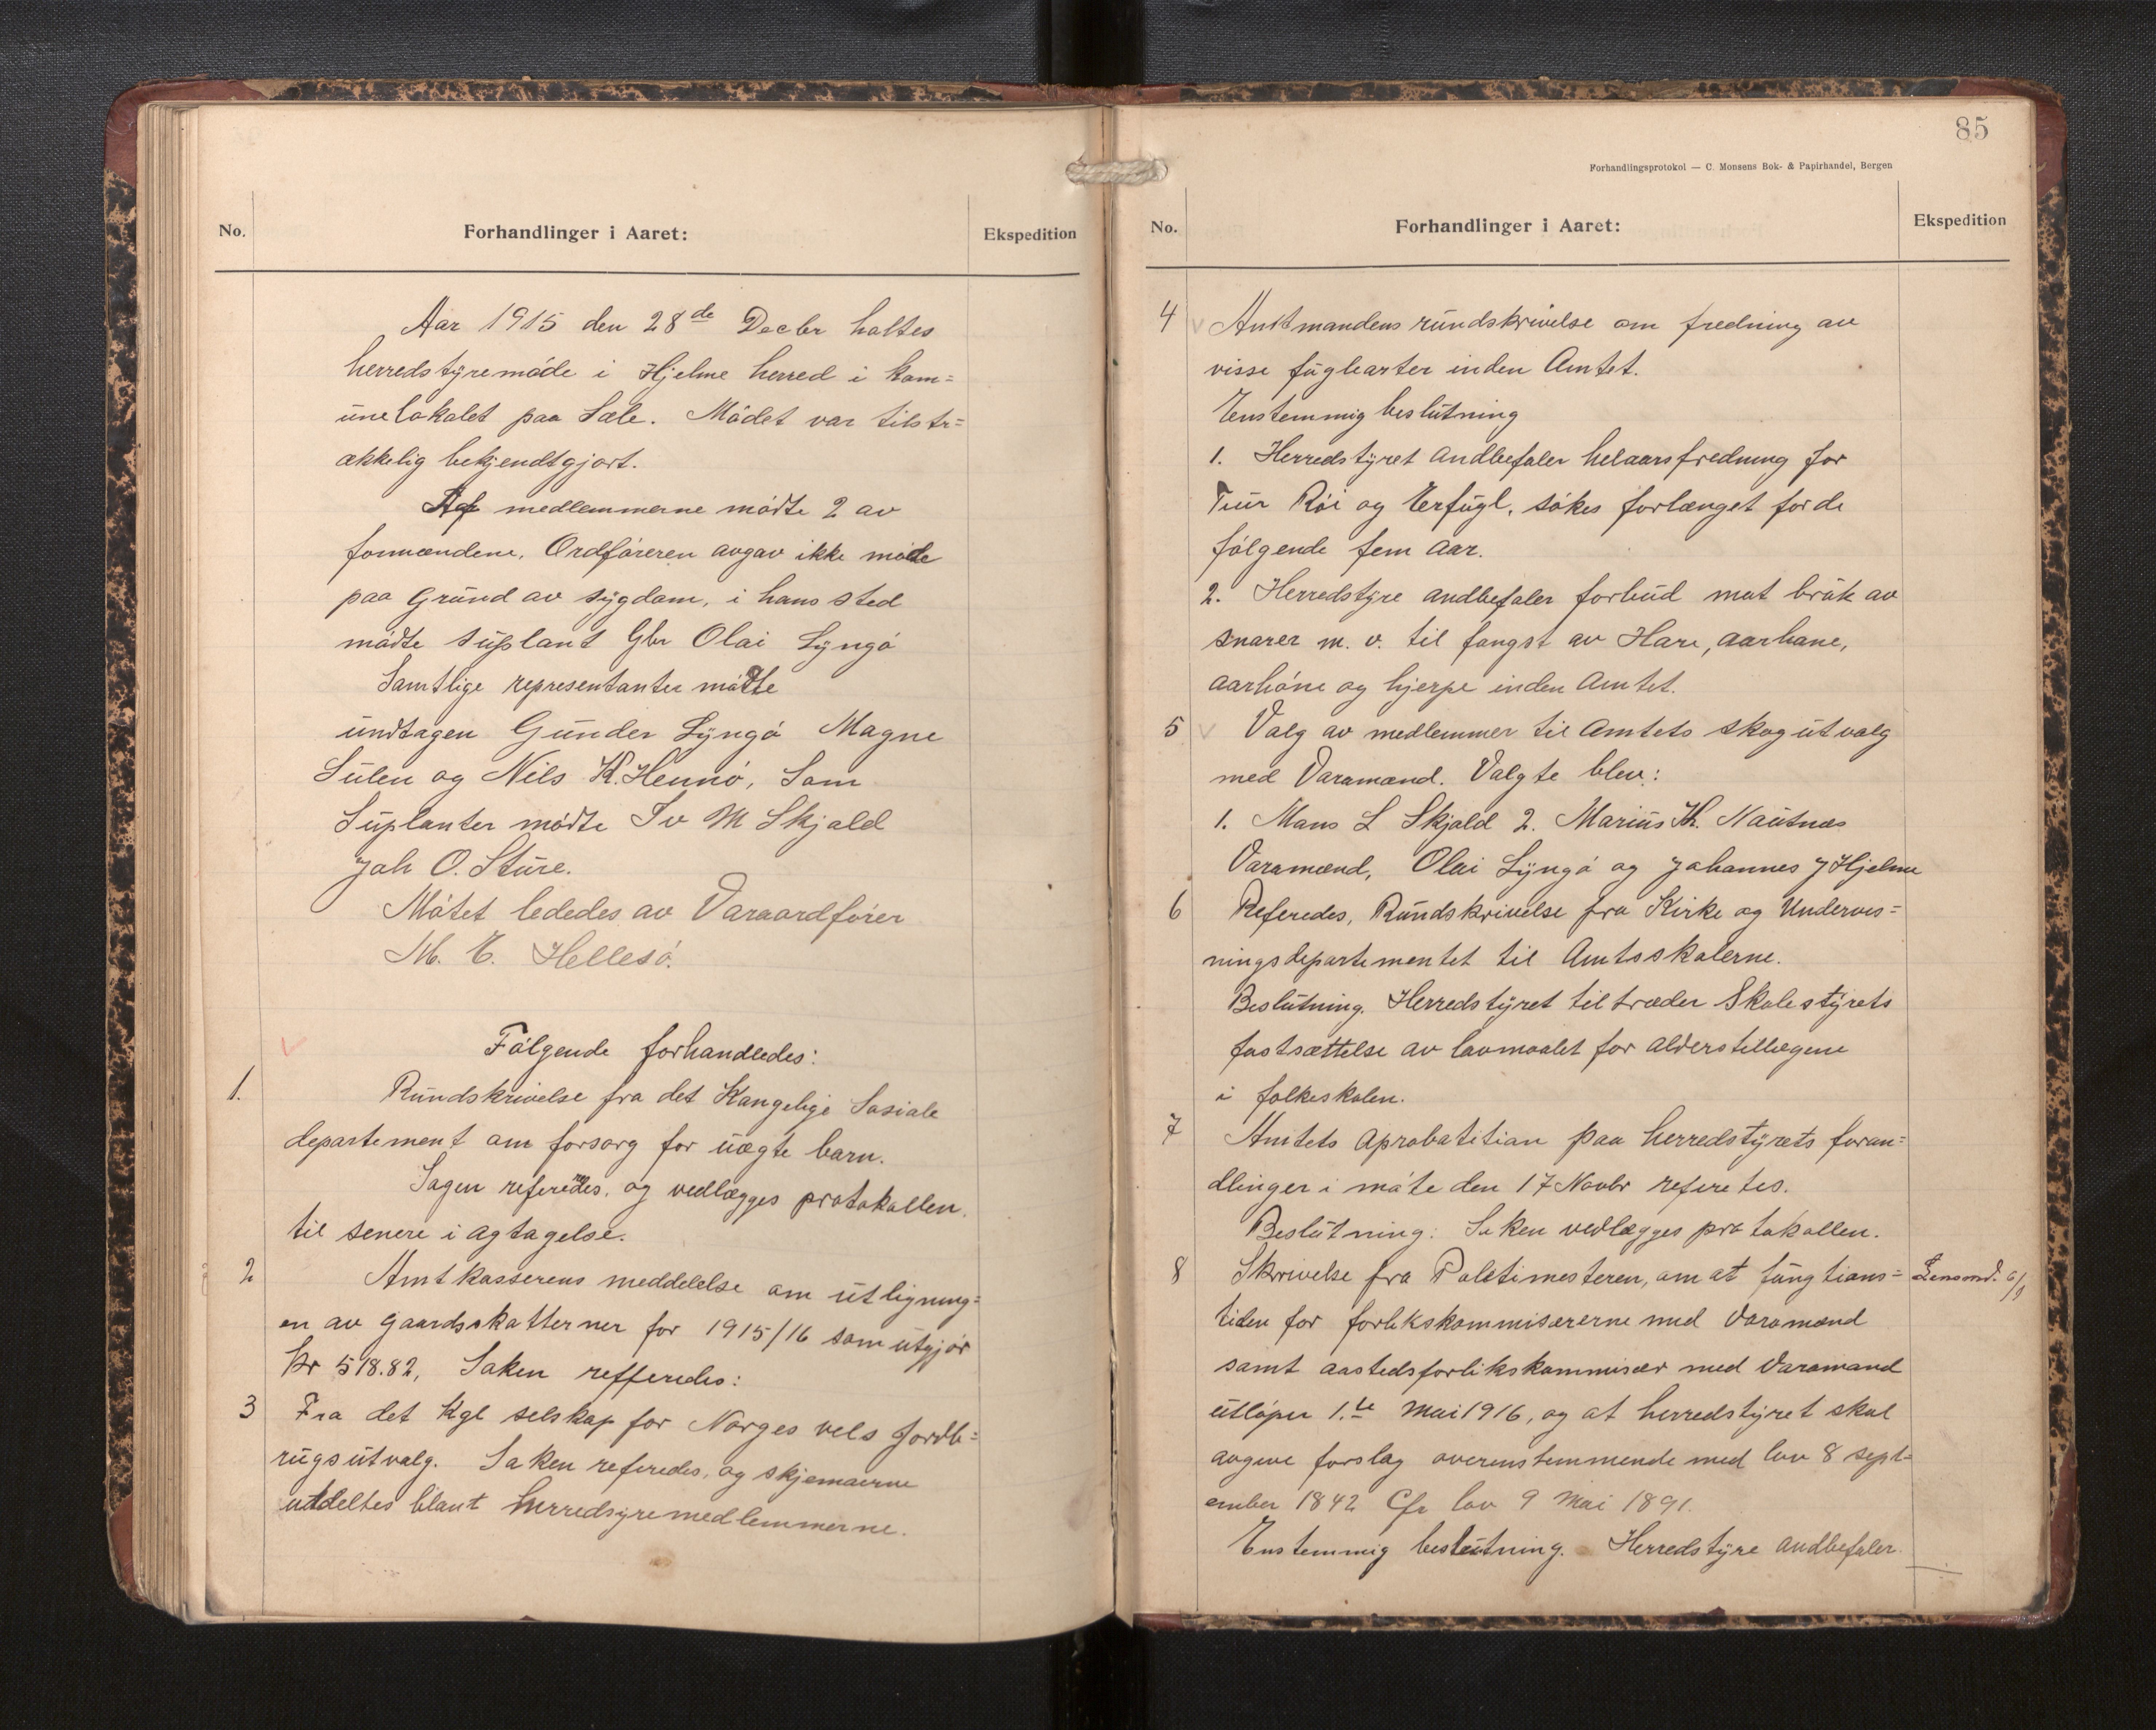 No.
Forhandlinger i Aaret:
Ekspedition
Aar 1915 den 28de Decbr holtes
herredstyremøde i Hjelme herred i kom=
unelokalet paa Sæle. Mødet var tilstr=
ækkelig bekjendtgjort.
Af medlemmerne mødte 2 av
formændene, Ordføreren avgav ikke møde
paa Grund av sygdom, i hans sted
mødte suplant Gbr Olai Lyngø
Samtlige representanter mødte
undtagen Gunder Lyngø Magne
Sulen og Nils K. Hennø, Som
Suplanter mødte Iv M Skjold
Joh O. Sture.
Møtet lededes av Varaordfører
M. E. Hellesø.
Følgende forhandledes:
1.
Rundskrivelse fra det Kongelige Sosiale
departement om forsorg for uægte barn.
Sagen refereredes, og vedlægges protokollen.
til senere iagtagelse.
2
Amtkasserens meddelelse om utligning=
en av gaardsskatterner for 1915/16 som utgjør
kr 518.82, Saken refferedes:
3
Fra det Kgl selskap for Norges vels Jordb=
rugsutvalg. Saken referedes, og skjemaerne
utdeltes blant herredsyremedlemmerne.
85
Forhandlingsprotokol — C. Monsens Bok- & Papirhandel, Bergen
No.
Forhandlinger i Aaret:
Ekspedition
4
Amtmandens rundskrivelse om fredning av
visse fuglearter inden Amtet.
Enstemmig beslutning
1. Herredstyret andbefaler helaarsfredning for
Tiur Røi og Erfugl, søkes forlænget for de
følgende fem aar.
2. Herredstyre andbefaler forbud mot bruk av
snarer m. v. til fangst av Hare, aarhane,
aarhøne og hjerpe inden Amtet.
5
Valg av medlemmer til Amtets skogutvalg
med Varamænd. Valgte blev:
1. Mons L Skjold 2. Marius Kr. Nautnes
Varamænd, Olai Lyngø og Johannes J Hjelme
6
Referedes, Rundskrivelse fra Kirke og Undervis=
ningsdepartementet til Amtsskolerne.
Beslutning. Herredstyret tiltræder Skolestyrets
fastsættelse av lavmaalet for alderstillægene
i folkeskolen.
7
Amtets Aprobatition paa herredstyrets foran=
dlinger i møte den 17 Novbr referetes.
Beslutning: Saken vedlægges protokollen.
8
Skrivelse fra Politimesteren, om at fungtions=
tiden for forlikskommisærerne med Varamænd
samt aastedsforlikskommisær med Varamand
utløper 1.te Mai 1916, og at herredstyret skal
avgive forslag overenstemmende med lov 8 sept=
ember 1842 Cfr lov 9 Mai 1891.
Enstemmig beslutning. Herredstyre andbefaler